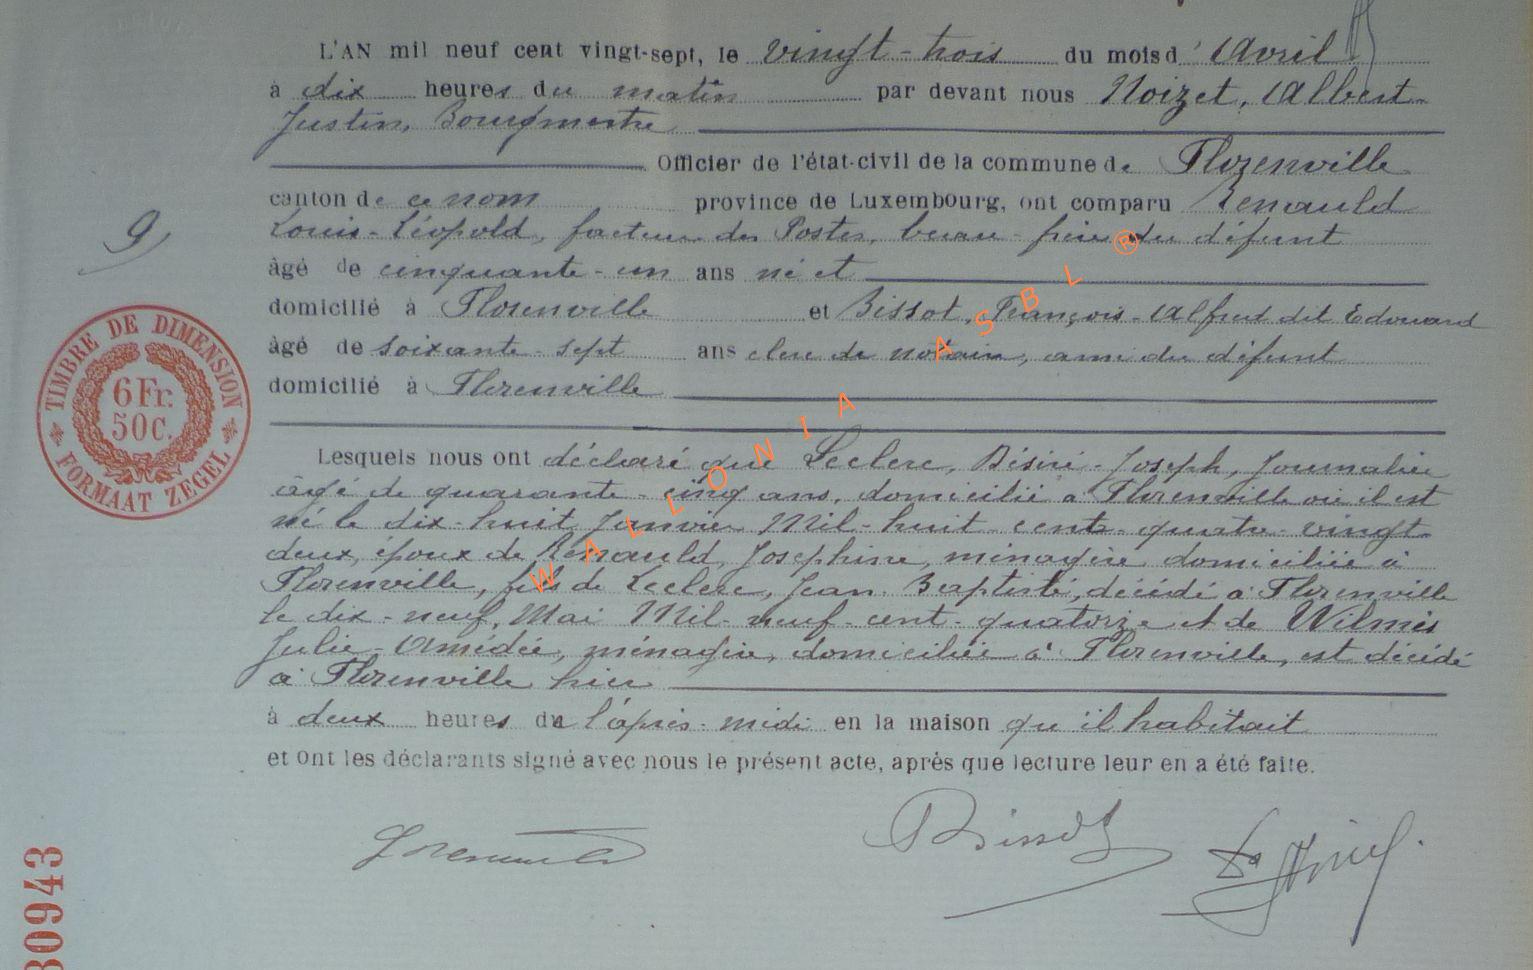 L'AN mil neuf cent vingt-sept, le vingt-trois du mois d'Avril
à dix heures du matin par devant nous Noizet, Albert
Justin, Bourgmestre
Officier de l'état-civil de la commune de Florenville
canton de ce nom province de Luxembourg, ont comparu Renauld
Louis-Léopold, facteur des Postes, beau-frère du défunt
âgé de cinquante-un ans né et
domicilié à Florenville et Bissot, François-Alfred dit Edouard
âgé de soixante-sept ans clerc de notaire, ami du défunt
domicilié à Florenville
Lesquels nous ont déclaré que Leclerc, Désiré-Joseph, Journalier
âgé de quarante-cinq ans, domicilié à Florenville où il est
né le dix-huit Janvier Mil-huit cent-quatre-vingt
deux, époux de Renauld, Josephine, ménagère domiciliée à
Florenville, fils de Leclerc, Jean Baptiste, décédé à Florenville
le dix-neuf Mai Mil-neuf-cent-quatorze et de Wilmès
Julie-Amédée, ménagère, domiciliée à Florenville, est décédé
à Florenville hier
à deux heures de l'après-midi en la maison qu'il habitait
et ont les déclarants signé avec nous le présent acte, après que lecture leur en a été faite.
Bissot
9
TIMBRE DE DIMENSION
6 Fr.
50 C.
FORMAAT ZEGEL
30943
WALLONIA ASBL ®